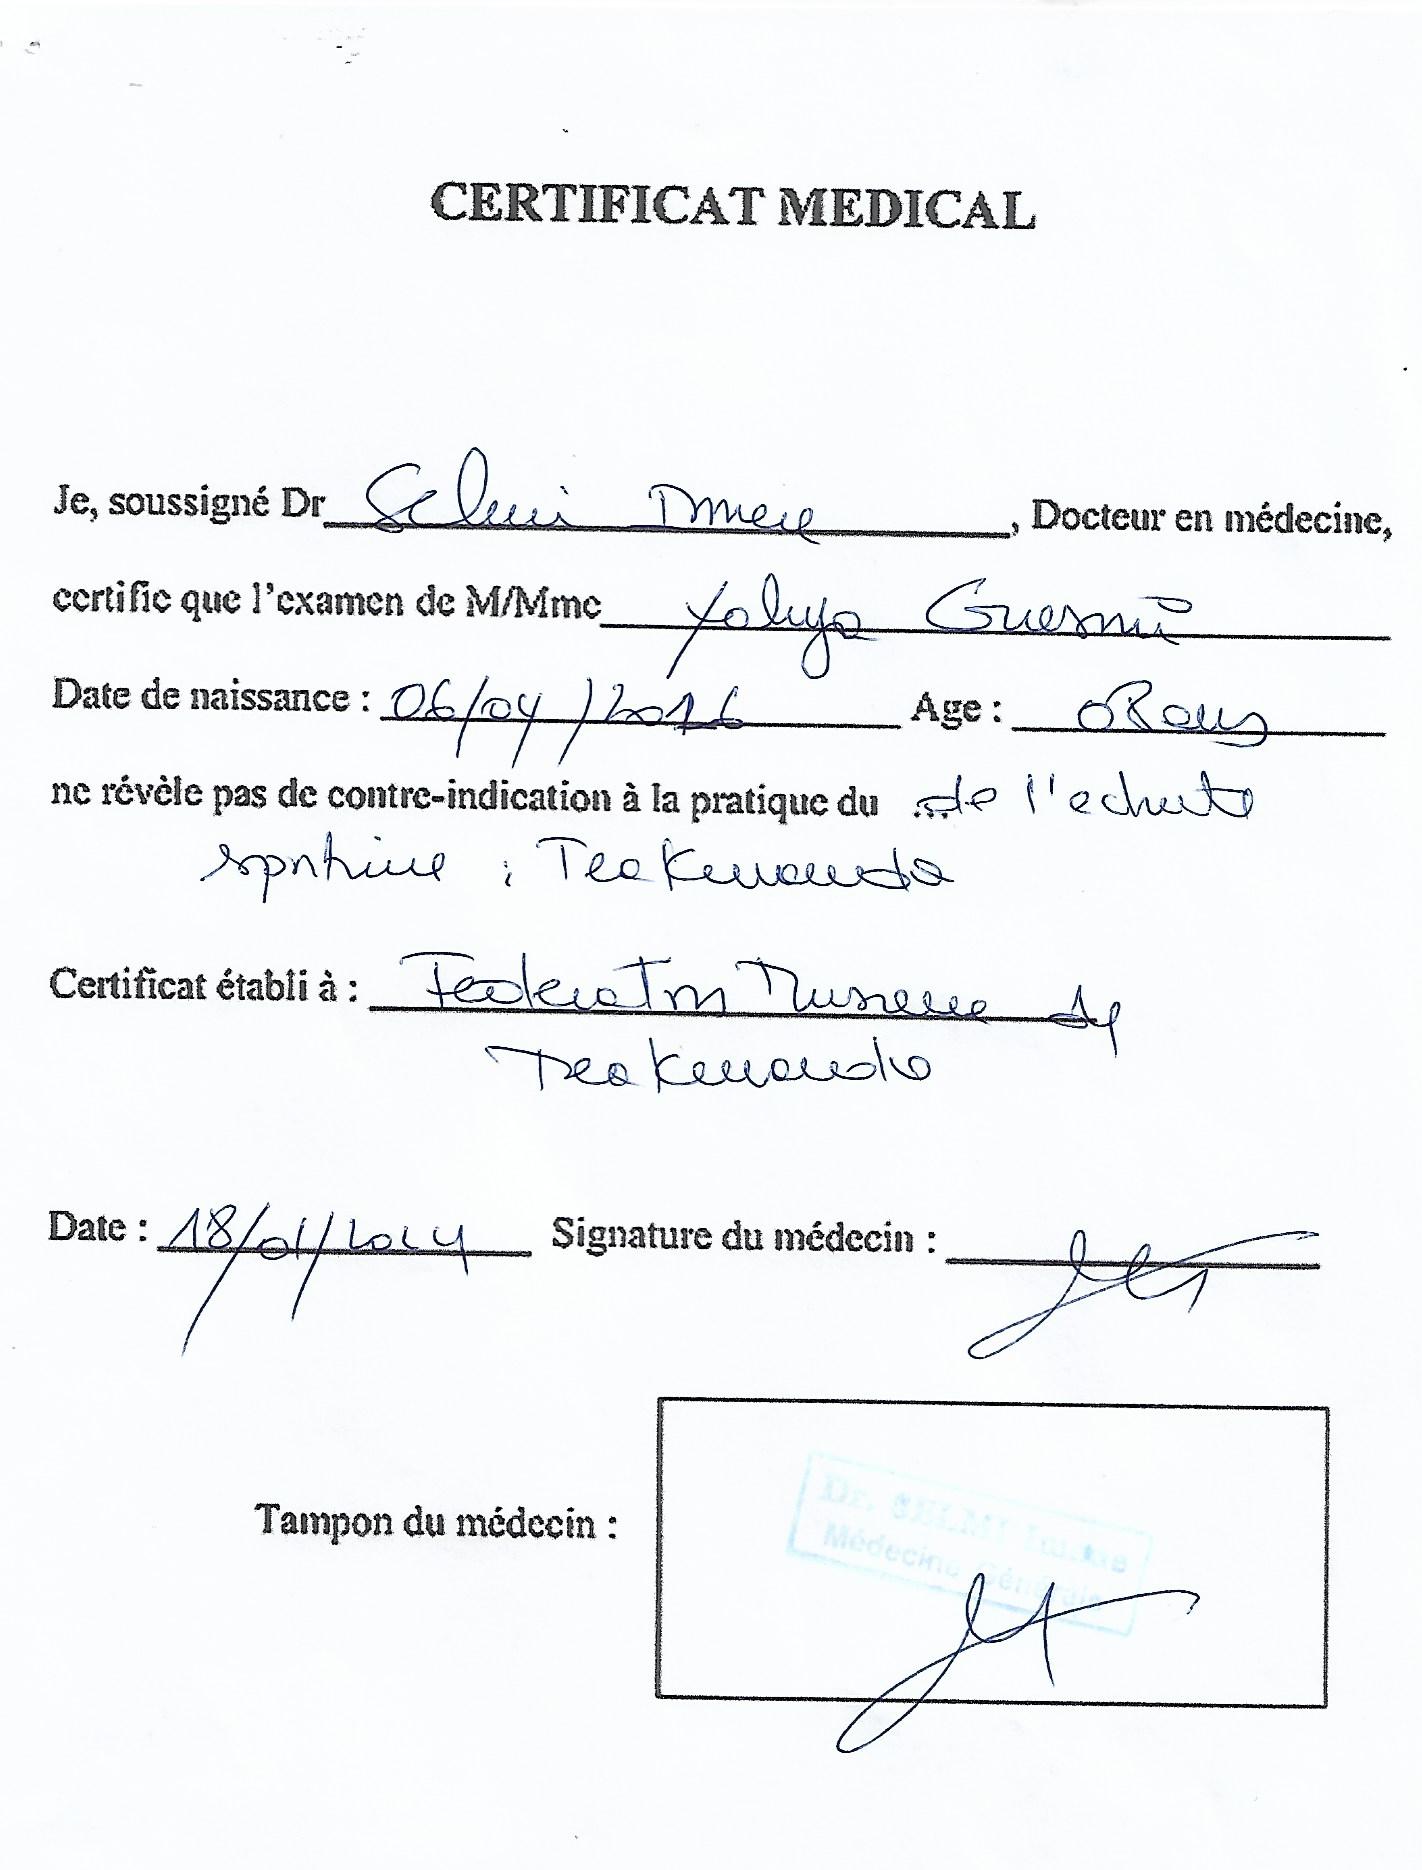 CERTIFICAT MEDICAL
Je, soussigné Dr Selmi, Docteur en médecine,
certifie que l'examen de M/Mme Yahya Guesmi
Date de naissance : 06/04/2016 Age : 08 ans
ne révèle pas de contre-indication à la pratique du ... de l'
sportive : Taekwondo
Certificat établi à : Federation Tunisienne de
Taekwondo
Date : 18/01/2024 Signature du médecin :
Tampon du médecin :
Dr. SELMI
Médecine Générale